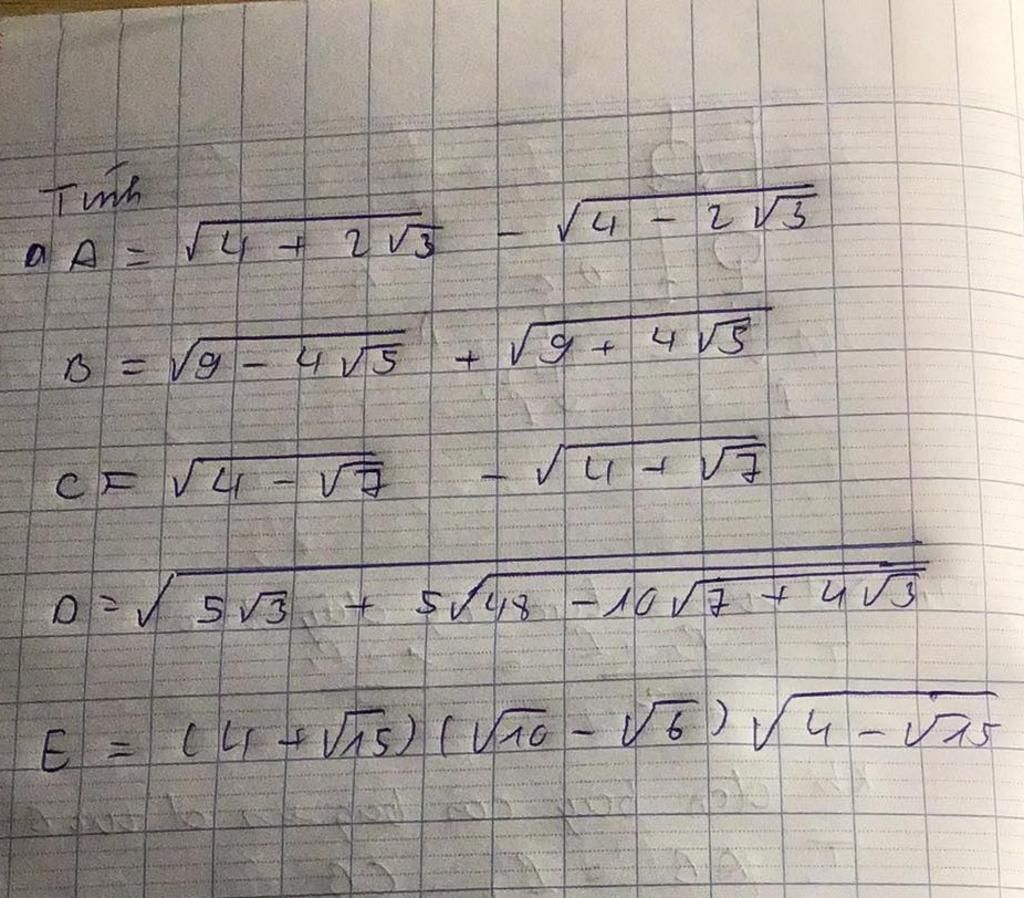 Tính
a A = √(4 + 2√3) - √(4 - 2√3)
B = √(9 - 4√5) + √(9 + 4√5)
C = √(4 - √7) - √(4 + √7)
D = √(5√3 + 5√(48 - 10√(7 + 4√3)))
E = (4 + √15)(√10 - √6)√(4 - √15)